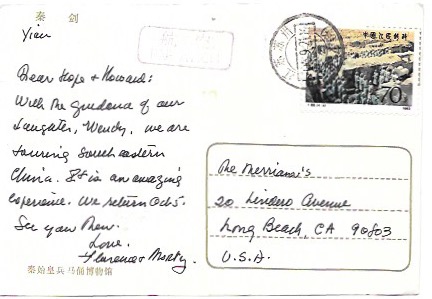 秦 剑
Xian
Dear Hope + Howard:
With the guidance of our
daughter, Wendy, we are
touring South eastern
China. It is an amazing
experience. We return Oct 5.
See you then.
Love,
Florence + Morty
秦始皇兵马俑博物馆
70
The Merriams's
20 Lindero Avenue
Long Beach, CA 90803
U.S.A.